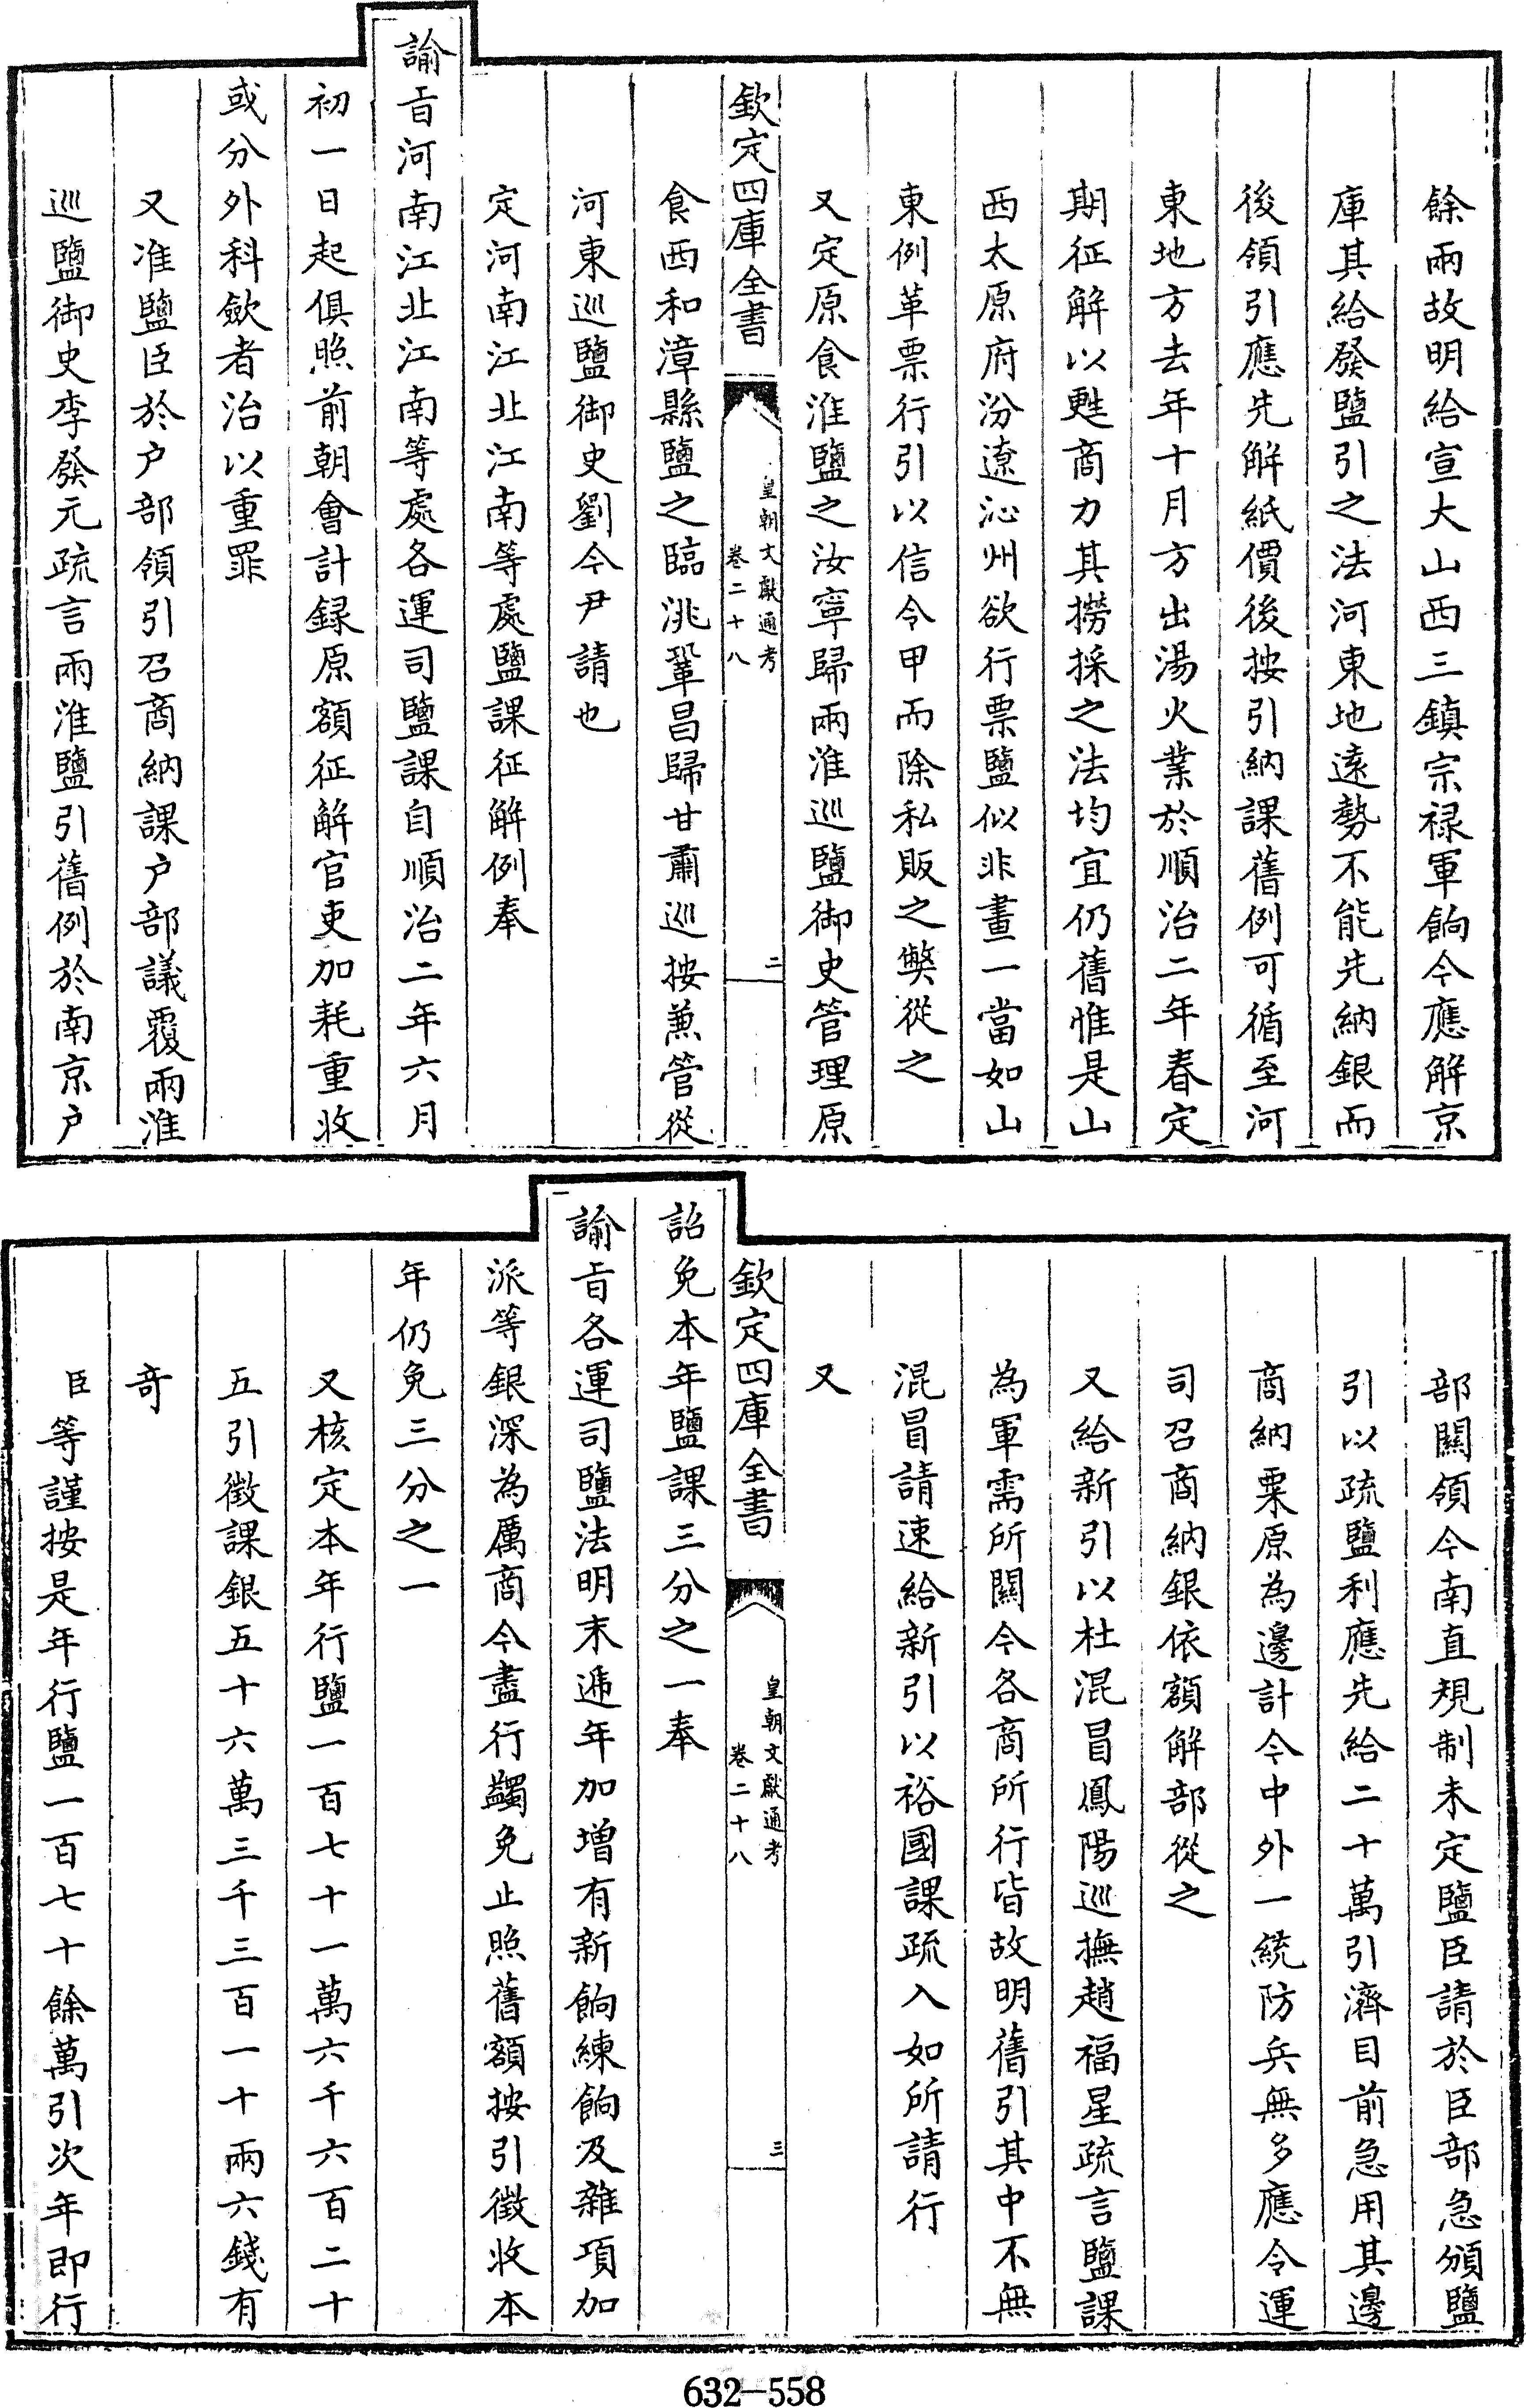 餘兩故明給宣大山西三鎮宗禄軍餉今應解京
庫其給發鹽引之法河東地遠勢不能先納銀而
後領引應先解紙價後按引納課舊例可循至河
東地方去年十月方出湯火業於順治二年春定
期征解以甦商力其撈採之法均宜仍舊惟是山
西太原府汾遼沁州欲行票鹽似非畫一當如山
東例革票行引以信令甲而除私販之弊從之
又定原食淮鹽之汝寧歸兩淮巡鹽御史管理原
欽定四庫全書
皇朝文獻通考
卷二十八
二
食西和漳縣鹽之臨洮鞏昌歸甘肅巡按兼管從
河東巡鹽御史劉今尹請也
定河南江北江南等處鹽課征解例奉
諭旨河南江北江南等處各運司鹽課自順治二年六月
初一日起俱照前朝會計録原額征解官吏加耗重收
或分外科斂者治以重罪
又准鹽臣於户部領引召商納課户部議覆兩淮
巡鹽御史李發元疏言兩淮鹽引舊例於南京户
部關領今南直規制未定鹽臣請於臣部急頒鹽
引以疏鹽利應先給二十萬引濟目前急用其邊
商納粟原為邊計今中外一統防兵無多應令運
司召商納銀依額解部從之
又給新引以杜混冒鳳陽巡撫趙福星疏言鹽課
為軍需所關今各商所行皆故明舊引其中不無
混冒請速給新引以裕國課疏入如所請行
又
欽定四庫全書
皇朝文獻通考
卷二十八
三
詔免本年鹽課三分之一奉
諭旨各運司鹽法明末遞年加增有新餉練餉及雜項加
派等銀深為厲商今盡行蠲免止照舊額按引徵收本
年仍免三分之一
又核定本年行鹽一百七十一萬六千六百二十
五引徵課銀五十六萬三千三百一十兩六錢有
奇
臣等謹按是年行鹽一百七十餘萬引次年即行
632-558